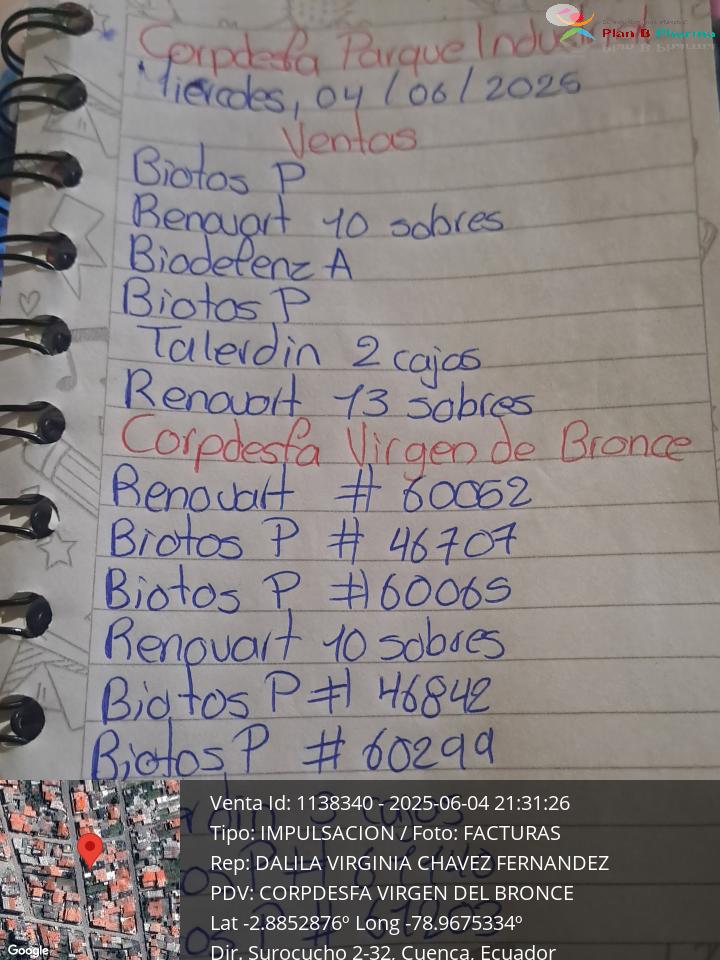 Plan B Pharma
Corpdesfa Parque Industrial
Miercoles, 04/06/2025
Ventas
Biotos P
Renovart 10 sobres
Biodefenz A
Biotos P
Talerdin 2 cajas
Renovart 13 sobres
Corpdesfa Virgen de Bronce
Renovart # 60062
Biotos P # 46707
Biotos P # 60065
Renovart 10 sobres
Biotos P # 46842
Biotos P # 60299
3 cajas
Venta Id: 1138340 - 2025-06-04 21:31:26
Tipo: IMPULSACION / Foto: FACTURAS
Rep: DALILA VIRGINIA CHAVEZ FERNANDEZ
PDV: CORPDESFA VIRGEN DEL BRONCE
Lat -2.8852876º Long -78.9675334º
Dir. Surocucho 2-32, Cuenca, Ecuador
Google